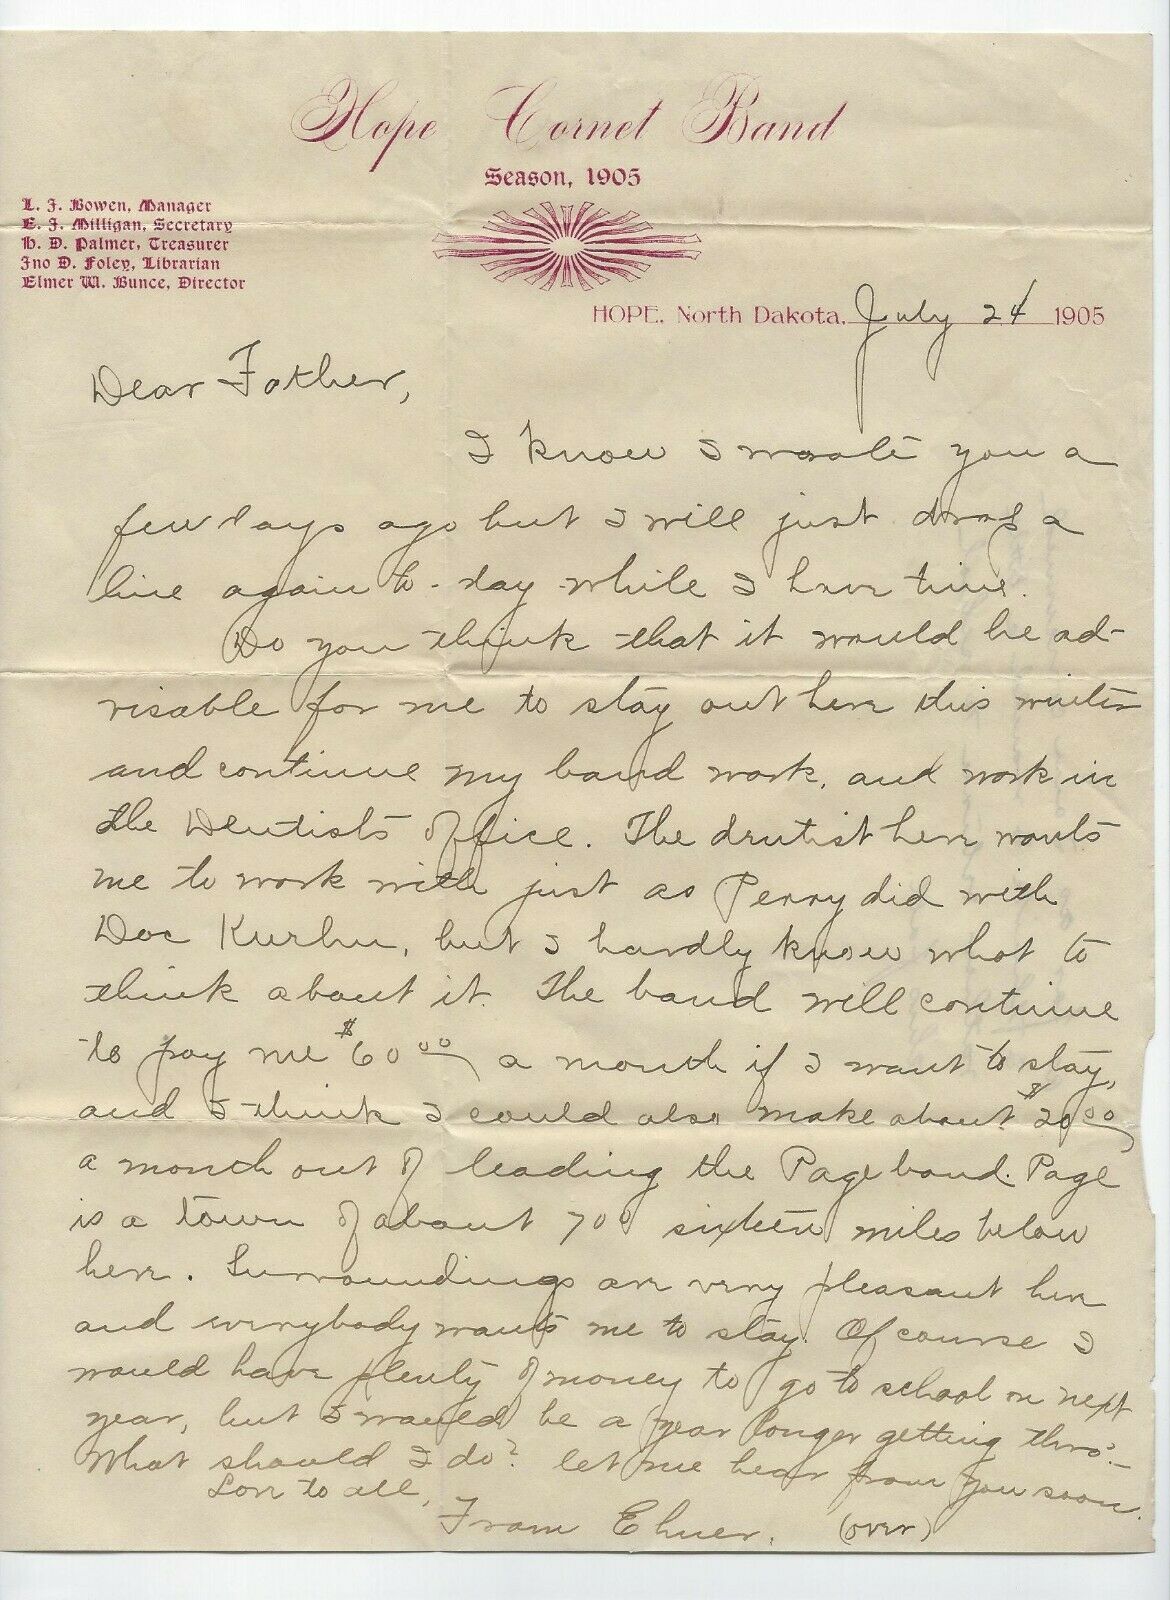 Hope Cornet Band
Season, 1905
L. J. Bowen, Manager
E. J. Milligan, Secretary
H. D. Palmer, Treasurer
Jno D. Foley, Librarian
Elmer W. Bunce, Director
HOPE, North Dakota, July 24 1905
Dear Father,
I know I wrote you a
few days ago but I will just drop a
line again to-day while I have time.
Do you think that it would be ad-
visable for me to stay out here this winter
and continue my band work, and work in
the Dentists office. The dentist here wants
me to work with just as Perry did with
Doc, but I hardly know what to
think about it. The band will continue
to pay me $60.00 a month if I want to stay,
and I think I could also make about $20.00
a month out of leading the Page band. Page
is a town of about 700 sixteen miles below
here. Surroundings are very pleasant here
and everybody wants me to stay. Of course I
would have plenty of money to go to school on next
year, but I would be a year longer getting thro'.
What should I do? let me hear from you soon.
Love to all,
From Elmer. (over)